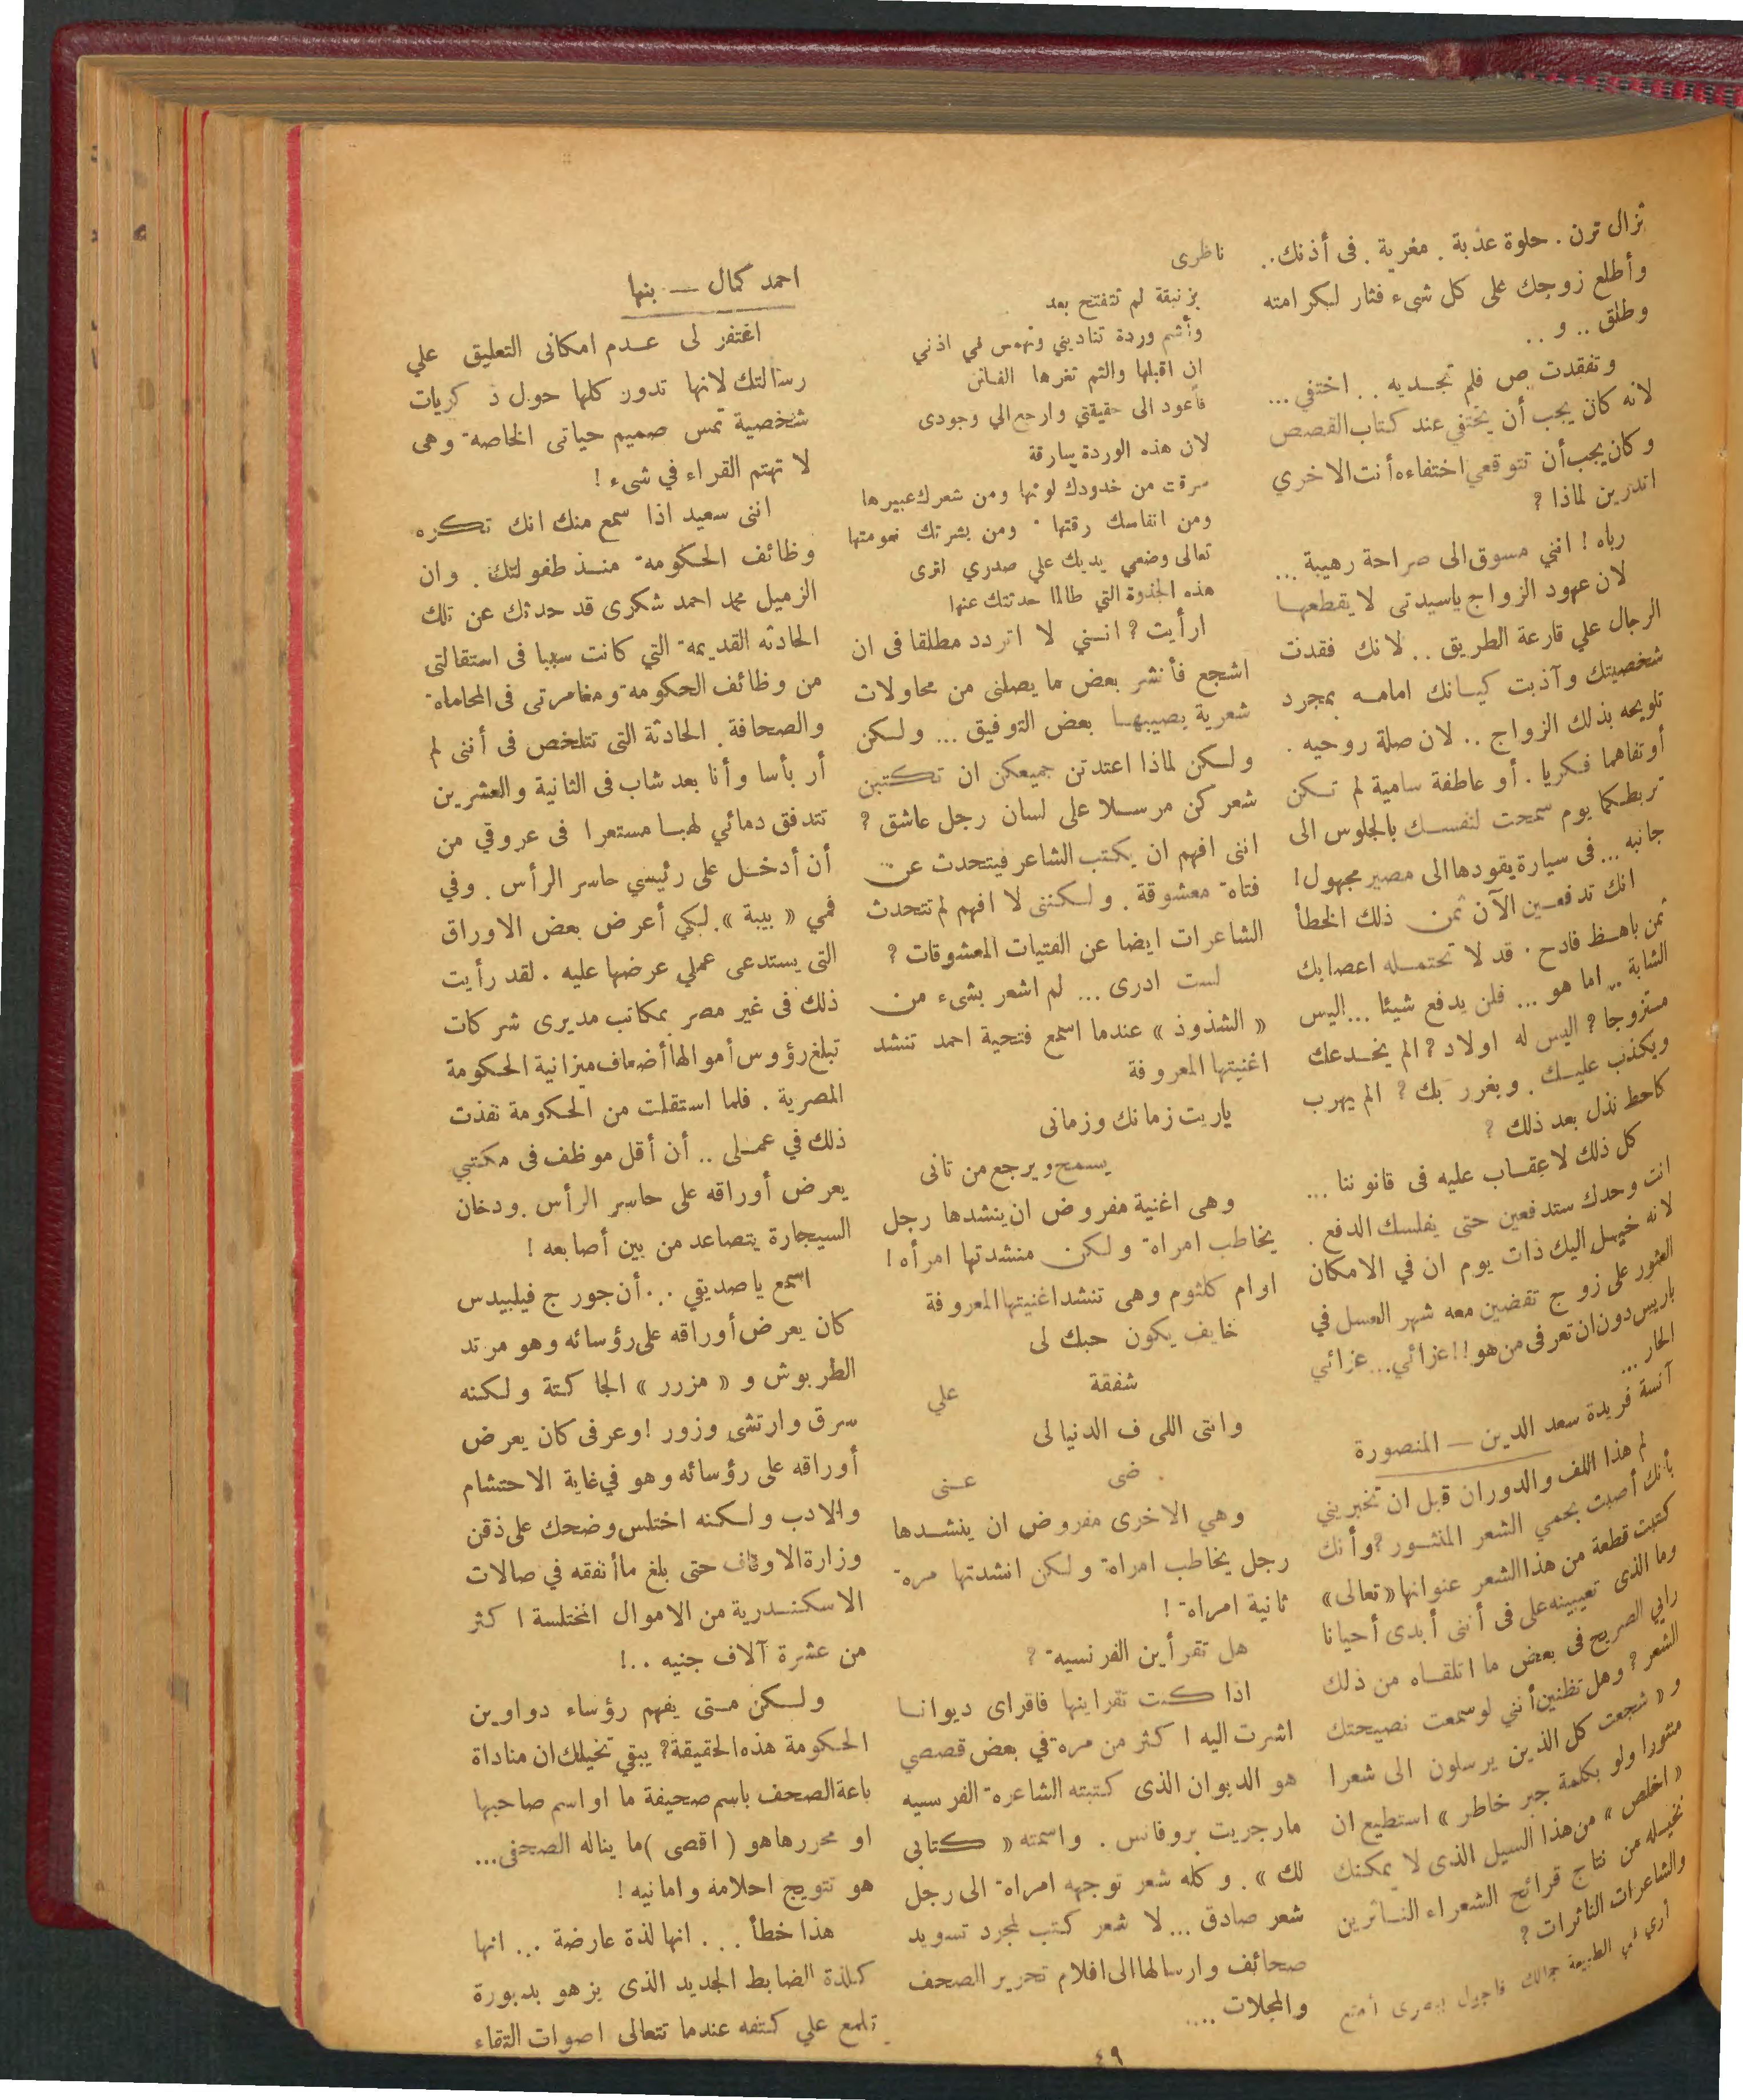 تزال ترن . حلوة عذبة . مغرية . فى أذنك ..
وأطلع زوجك على كل شىء فثار لكرامته
وطلق .. و ..
وتفقدت ص فلم تجديه .. اختفي ...
لانه كان يجب أن يختفي عند كتاب القصص
وكان يجب أن تتوقعي اختفاءه أنت الاخري
اتدرين لماذا ؟
رباه ! انني مسوق الى صراحة رهيبة ...
لان عهود الزواج ياسيدتى لا يقطعها
الرجال علي قارعة الطريق .. لانك فقدت
شخصيتك وآذبت كيانك امامه بمجرد
تلويحه بذلك الزواج .. لان صلة روحيه .
أو تفاهما فكريا . أو عاطفة سامية لم تكن
تربطكما يوم سمحت لنفسك بالجلوس الى
جانبه ... فى سيارة يقودها الى مصير مجهول !
انك تدفعين الآن ثمن ذلك الخطأ
ثمن باهظ فادح . قد لا تحتمله اعصابك
الشابة .. اما هو ... فلن يدفع شيئا ... اليس
متزوجا ؟ اليس له اولاد ؟ الم يخدعك
ويكذب عليك . ويغرر بك ؟ الم يهرب
كاحط نذل بعد ذلك ؟
كل ذلك لا عقاب عليه فى قانوننا ...
انت وحدك ستدفعين حتى يفلسك الدفع .
لانه خيل اليك ذات يوم ان في الامكان
العثور على زوج تقضين معه شهر العسل في
باريس دون ان تعرفى من هو !! عزائي ... عزائي
الحار ...
آنسة فريدة سعد الدين — المنصورة
لم هذا اللف والدوران قبل ان تخبريني
بأنك أصبت بحمي الشعر المنثور ؟ وأنك
كتبت قطعة من هذا الشعر عنوانها « تعالى »
وما الذى تعيبينه على فى أننى أبدى أحيانا
رايي الصريح فى بعض ما اتلقاه من ذلك
الشعر ؟ وهل تظنين أنني لو سمعت نصيحتك
و « شجعت كل الذين يرسلون الى شعرا
منثورا ولو بكلمة جبر خاطر » استطيع ان
« اخلص » من هذا السيل الذى لا يمكنك
تخيله من نتاج قرائح الشعراء الناثرين
والشاعرات الناثرات ؟
أري في الطبيعة جمالك فاجول ببصرى أمتع
ناظرى
بزنبقة لم تتفتح بعد
وأشم وردة تناديني وتهمس في اذني
ان اقبلها والثم ثغرها الفاتن
فأعود الى حقيقتي وارجع الي وجودى
لان هذه الوردة سارقة
سرقت من خدودك لونها ومن شعرك عبيرها
ومن انفاسك رقتها . ومن بشرتك نعومتها
تعالى وضعي يديك علي صدري اترى
هذه الجذوة التي طالما حدثتك عنها
ارأيت ؟ انني لا اتردد مطلقا فى ان
اشجع فأنشر بعض ما يصلنى من محاولات
شعرية يصيبها بعض التوفيق ... ولكن
ولكن لماذا اعتدتن جميعكن ان تكتبن
شعركن مرسلا على لسان رجل عاشق ؟
اننى افهم ان يكتب الشاعر فيتحدث عن
فتاة معشوقة . ولكننى لا افهم لم تتحدث
الشاعرات ايضا عن الفتيات المعشوقات ؟
لست ادرى ... لم اشعر بشىء من
« الشذوذ » عندما اسمع فتحية احمد تنشد
اغنيتها المعروفة
ياريت زمانك وزمانى
يسمح ويرجع من تانى
وهى اغنية مفروض ان ينشدها رجل
يخاطب امراة ولكن منشدتها امرأه !
او ام كلثوم وهى تنشد اغنيتها المعروفة
خايف يكون حبك لى
شفقة علي
وانتى اللى ف الدنيا لى
ضى عنى
وهي الاخرى مفروض ان ينشدها
رجل يخاطب امراة ولكن انشدتها مرة
ثانية امراة !
هل تقرأين الفرنسية ؟
اذا كنت تقراينها فاقراى ديوانا
اشرت اليه اكثر من مرة في بعض قصصي
هو الديوان الذى كتبته الشاعرة الفرسيه
مارجريت بروفانس . واسمته « كتابى
لك » . وكله شعر توجهه امراة الى رجل
شعر صادق ... لا شعر كتب لمجرد تسويد
صحائف وارسالها الى اقلام تحرير الصحف
والمجلات ....
احمد كمال — بنها
اغتفر لى عدم امكانى التعليق علي
رسالتك لانها تدور كلها حول ذكريات
شخصية تمس صميم حياتى الخاصة وهى
لا تهتم القراء في شىء !
اننى سعيد اذا سمع منك انك تكره
وظائف الحكومة منذ طفولتك . وان
الزميل محمد احمد شكرى قد حدثك عن تلك
الحادثه القديمة التي كانت سببا فى استقالتى
من وظائف الحكومة ومغامرتى فى المحاماة
والصحافة . الحادثة التى تتلخص فى أننى لم
أر بأسا وأنا بعد شاب فى الثانية والعشرين
تتدفق دمائي لهبا مستعرا فى عروقي من
أن أدخل على رئيسي حاسر الرأس . وفي
فمي « بيبة » . لكي أعرض بعض الاوراق
التى يستدعى عملي عرضها عليه . لقد رأيت
ذلك فى غير مصر بمكاتب مديرى شركات
تبلغ رؤوس أموالها أضعاف ميزانية الحكومة
المصرية . فلما استقلت من الحكومة نفذت
ذلك في عملى .. أن أقل موظف فى مكتبي
يعرض أوراقه على حاسر الرأس . ودخان
السيجارة يتصاعد من بين أصابعه !
اسمع ياصديقي ... أن جورج فيلبيدس
كان يعرض أوراقه على رؤسائه وهو مرتد
الطربوش و « مزرر » الجاكتة ولكنه
سرق وارتشى وزور ! وعرفى كان يعرض
أوراقه على رؤسائه وهو في غاية الاحتشام
والادب ولكنه اختلس وضحك على ذقن
وزارة الاوقاف حتى بلغ ما أنفقه في صالات
الاسكندرية من الاموال المختلسة اكثر
من عشرة آلاف جنيه ..!
ولكن متى يفهم رؤساء دواوين
الحكومة هذه الحقيقة ؟ يبقي تخيلك ان مناداة
باعة الصحف باسم صحيفة ما او اسم صاحبها
او محررها هو ( اقصى ) ما يناله الصحفى ...
هو تتويج احلامه وامانيه !
هذا خطأ ... انها لذة عارضة ... انها
كلذة الضابط الجديد الذى يزهو بدبورة
تلمع علي كتفه عندما تتعالى اصوات التقاء
٤٩